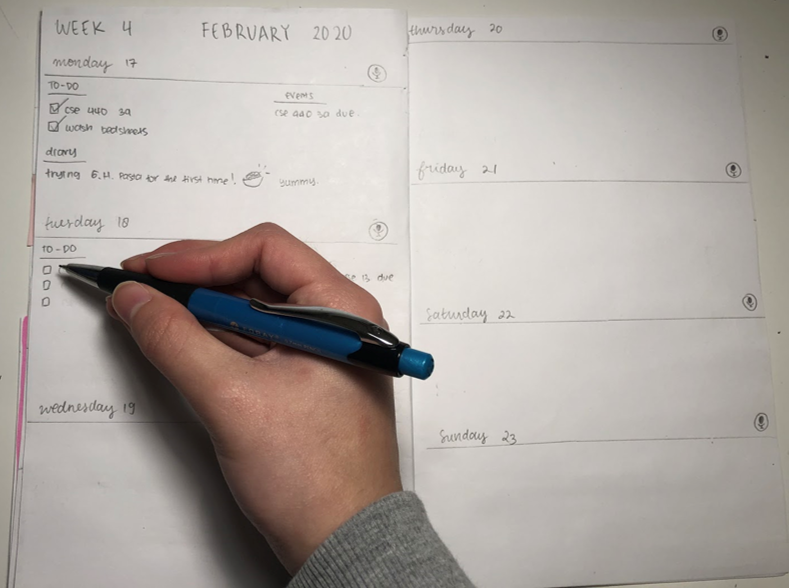 WEEK 4 FEBRUARY 2020
monday 17
TO-DO
cse 440 3a
wash bedsheets
events
cse 440 3a due
diary
trying G.H. Pasta for the first time! yummy.
tuesday 18
TO-DO
13 due
wednesday 19
thursday 20
friday 21
saturday 22
sunday 23